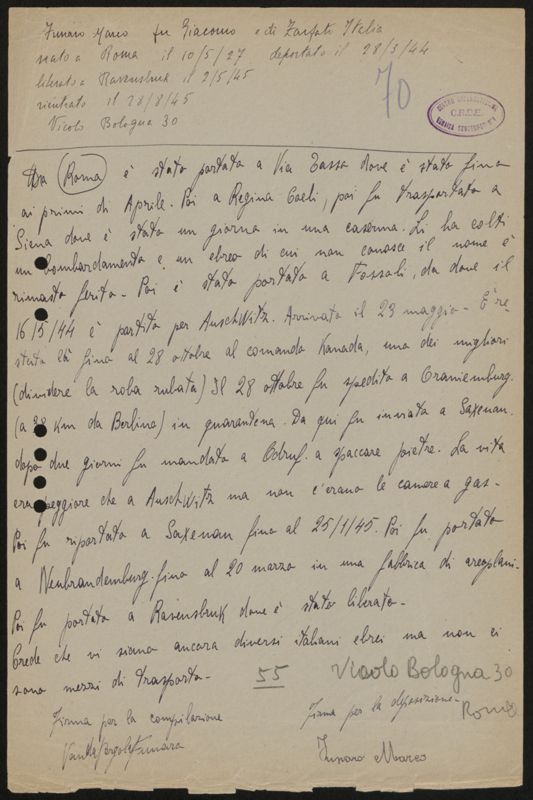 Funaro Marco fu Giacomo e di Zarfati Italia
nato a Roma il 10/5/27 deportato il 28/3/44
liberato a Ravensbruk il 2/5/45
rientrato il 28/8/45
Vicolo Bologna 30
70
C.R.D.E.
Da Roma è stato portato a Via Tasso dove è stato fino
ai primi di Aprile. Poi a Regina Coeli, poi fu trasportato a
Siena dove è stato un giorno in una caserma. Li ha colti
un bombardamento e un ebreo di cui non conosce il nome è
rimasto ferito - Poi è stato portato a Fossoli, da dove il
16/5/44 è partito per AuschWitz. Arrivato il 23 maggio - È re-
stato là fino al 28 ottobre al comando Kanada, uno dei migliori
(dividere la roba rubata) Il 28 ottobre fu spedito a Oraniemburg.
(a 30 Km da Berlino) in quarantena. Da qui fu inviato a Saxenau.
dopo due giorni fu mandato a Odruf. a spaccare pietre. La vita
era peggiore che a AuschWitz ma non c'erano le camere a gas -
Poi fu riportato a Saxenau fino al 25/1/45. Poi fu portato
a Neubrandemburg. fino al 20 marzo in una fabbrica di areoplani -
Poi fu portato a Ravensbruk dove è stato liberato -
Crede che vi siano ancora diversi italiani ebrei ma non ci
sono mezzi di trasporto -
55
Vicolo Bologna 30
Roma
Firma per la compilazione
Firma per la deposizione -
Funaro Marco